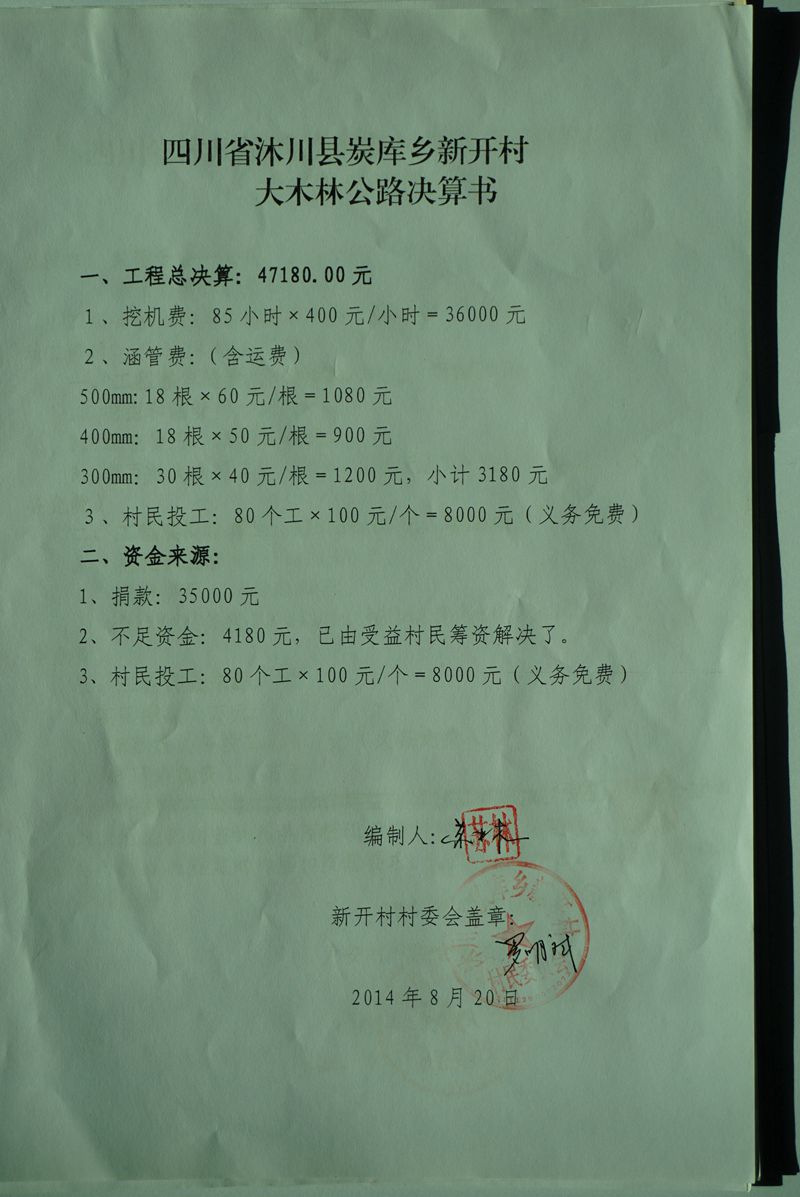 四川省沐川县炭库乡新开村
大木林公路决算书
一、工程总决算：47180.00元
1、挖机费：85小时×400元/小时=36000元
2、涵管费：（含运费）
500mm:18根×60元/根=1080元
400mm：18根×50元/根=900元
300mm：30根×40元/根=1200元，小计3180元
3、村民投工：80个工×100元/个=8000元（义务免费）
二、资金来源：
1、捐款：35000元
2、不足资金：4180元，已由受益村民筹资解决了。
3、村民投工：80个工×100元/个=8000元（义务免费）
编制人：
新开村村委会盖章：
罗明斌
2014年8月20日